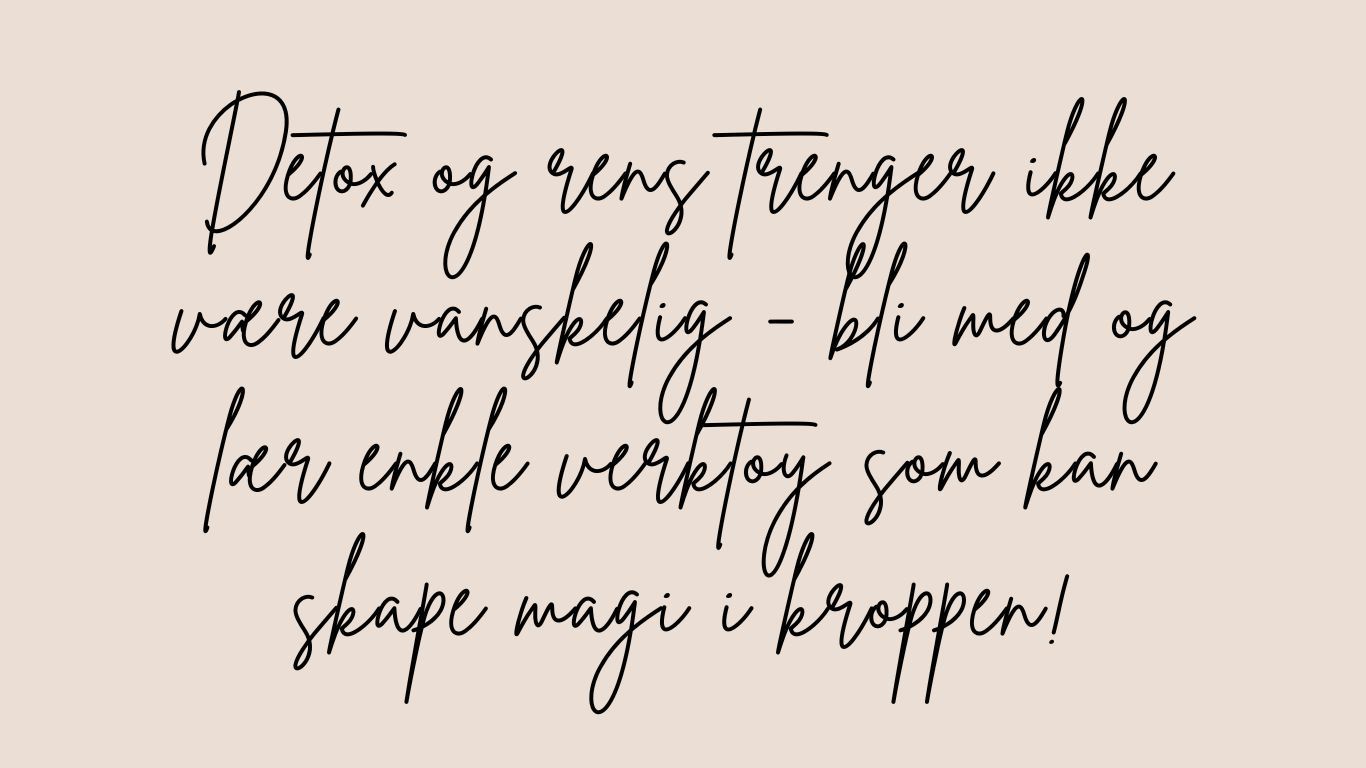 Detox og rens trenger ikke
være vanskelig - bli med og
lær enkle verktoy som kan
skape magi i kroppen!